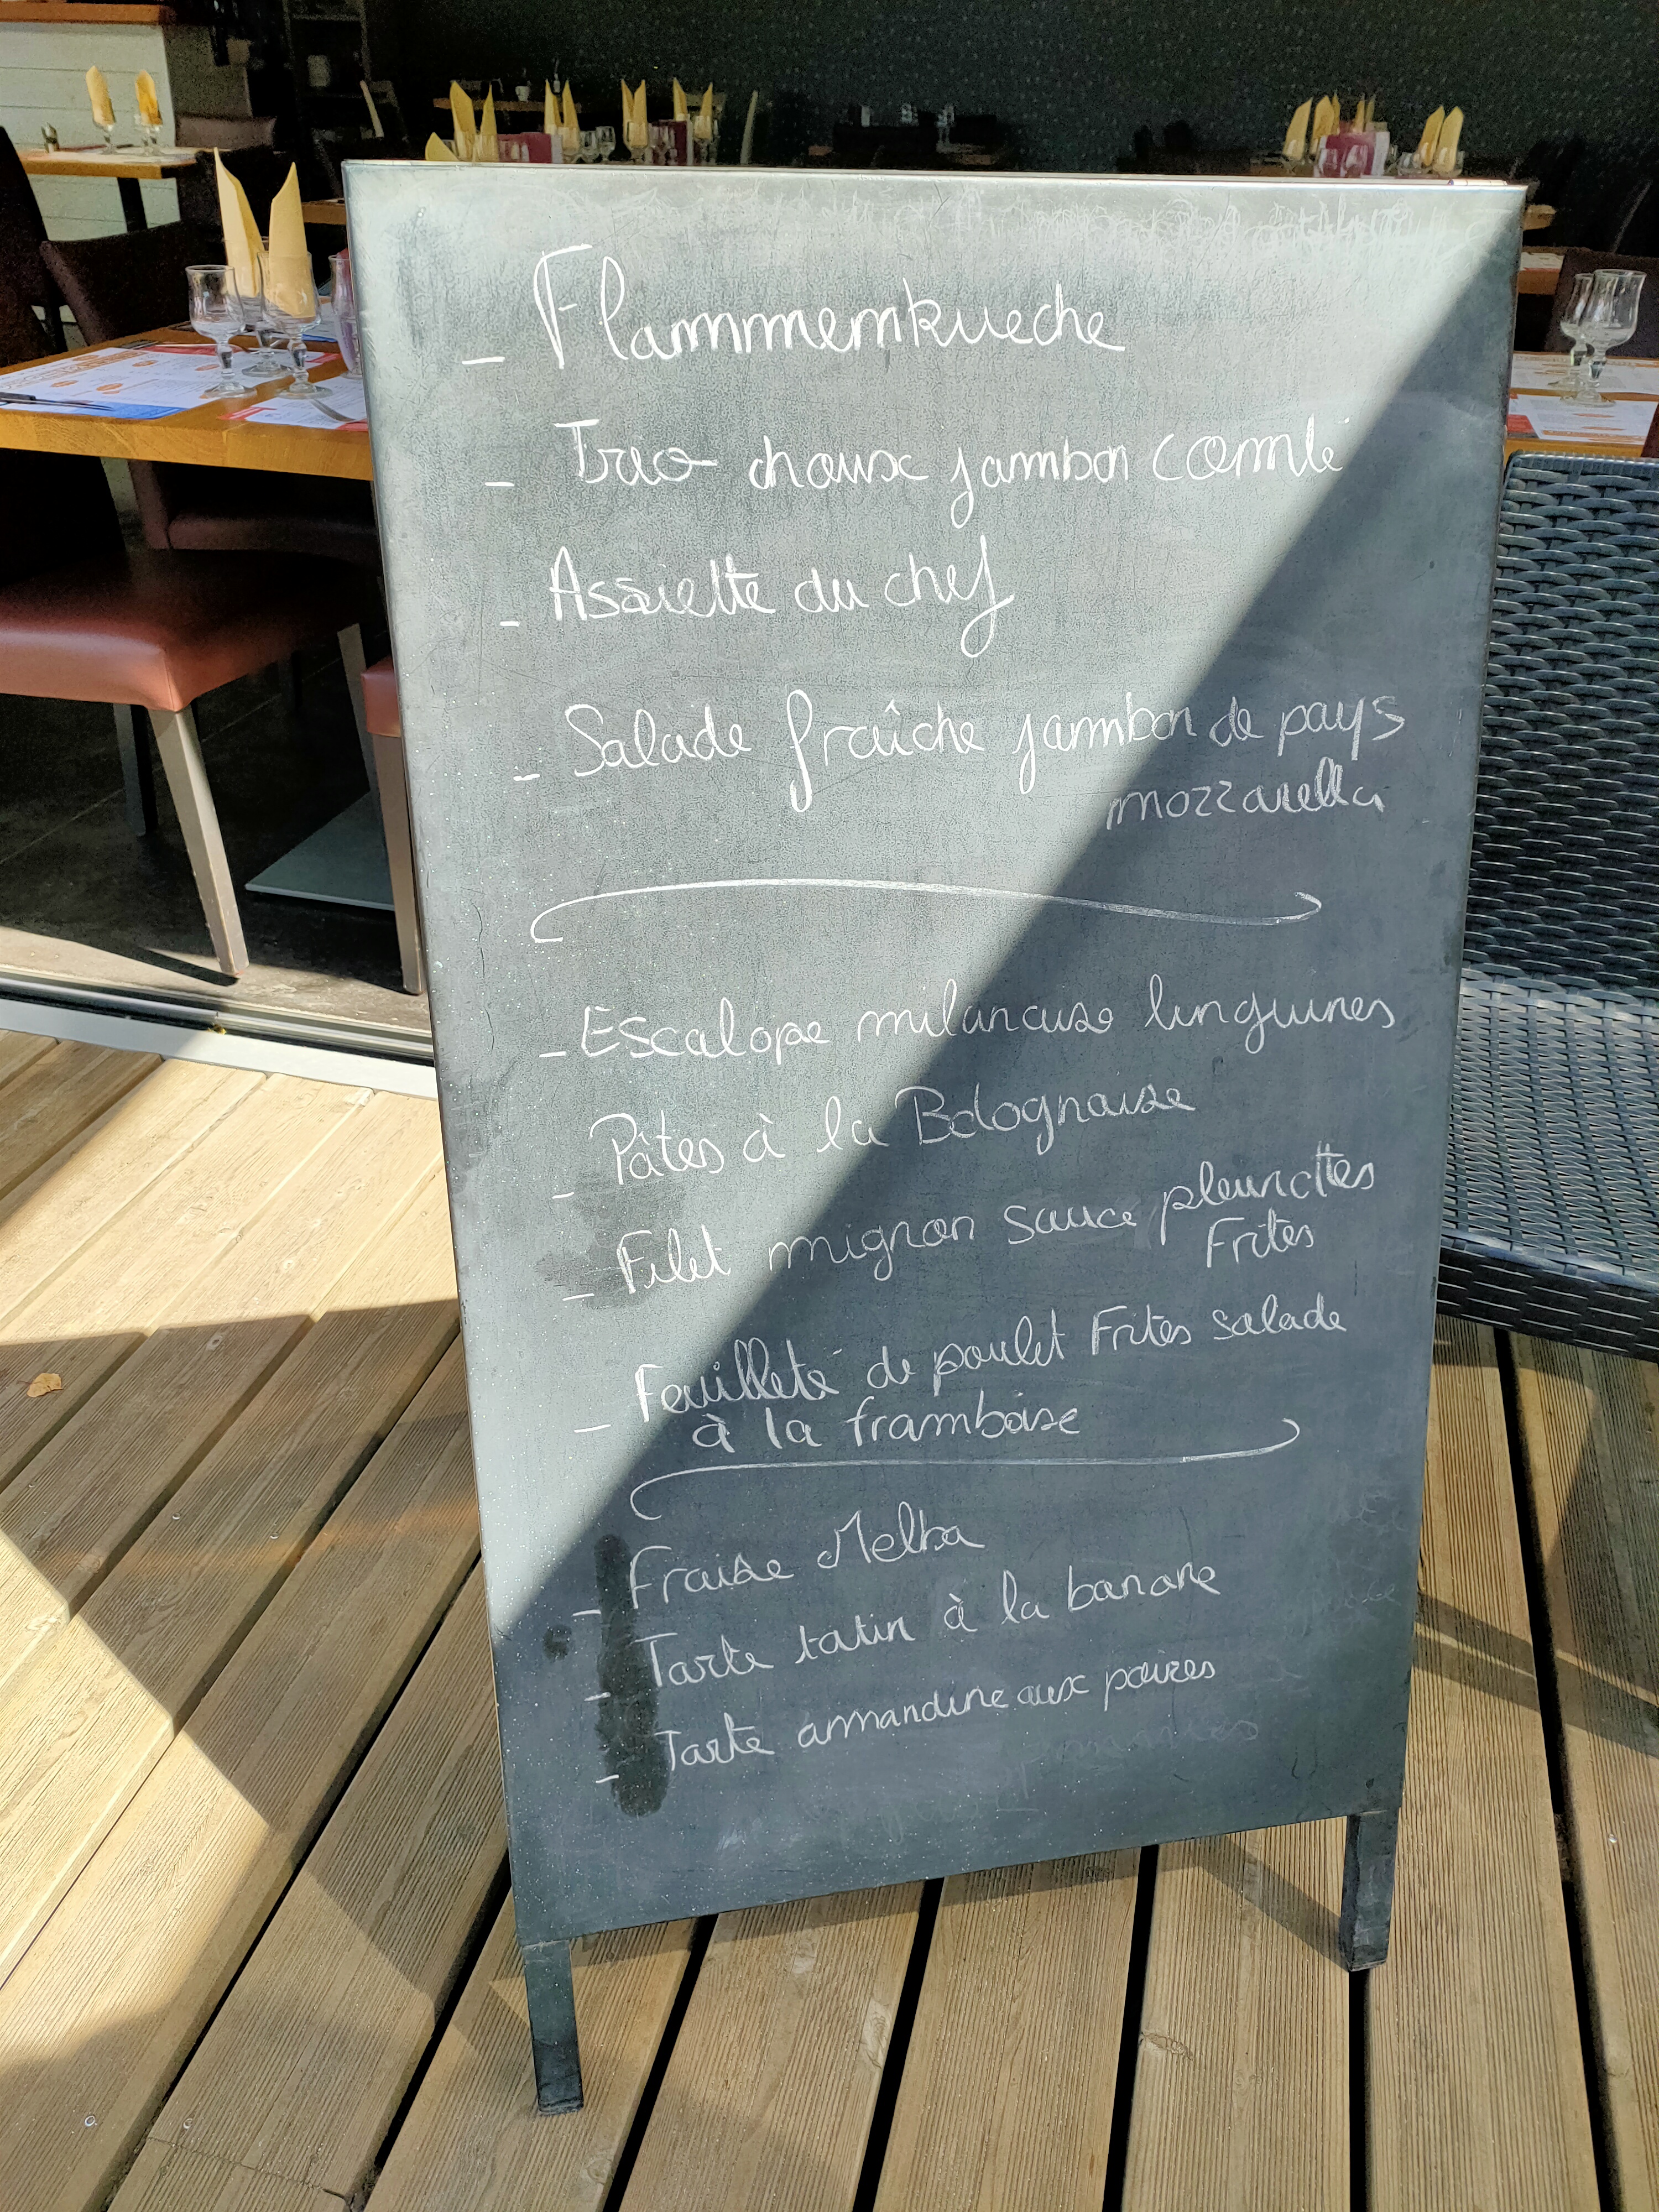 - Flammemkueche
- Trio choux jambon comté
- Assiette du chef
- Salade fraîche jambon de pays
mozzarella
- Escalope milanaise linguines
- Pâtes à la Bolognaise
- Filet mignon sauce pleurottes
Frites
- Feuilleté de poulet Frites salade
à la framboise
- Fraise Melba
- Tarte tatin à la banane
- Tarte amandine aux poires